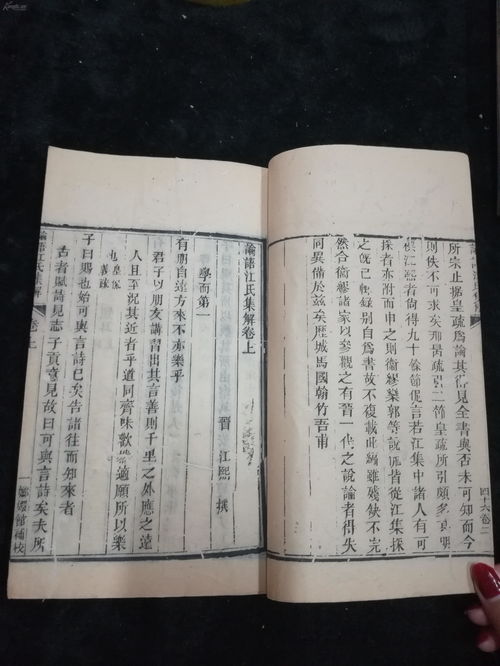 所宗止據皇疏爲論其得見全書與否未可知而今
則佚不可求矣邢昺疏引二節皇疏所引頗多
江熙者尙得九十餘節便言若江集中諸人有可
採者亦附而申之則
之既已輯錄別自爲書故不複載此編雖殘佚不完
然合衞繆諸家以參觀之有晉一代之說論者得失
同異備於茲矣歷城馬國翰竹吾甫
論語江氏集解卷上
晉 江熙 撰
學而第一
有朋自遠方來不亦樂乎
君子以朋友講習出其言善則千里之外應之遠
人且至況其近者乎道同齊味歡然適願所以樂
也皇侃義疏
子曰賜也始可與言詩已矣告諸往而知來者
古者賦詩見志子貢意見故曰可與言詩矣夫所
論語江氏集解
卷上
一
嫏嬛館補校